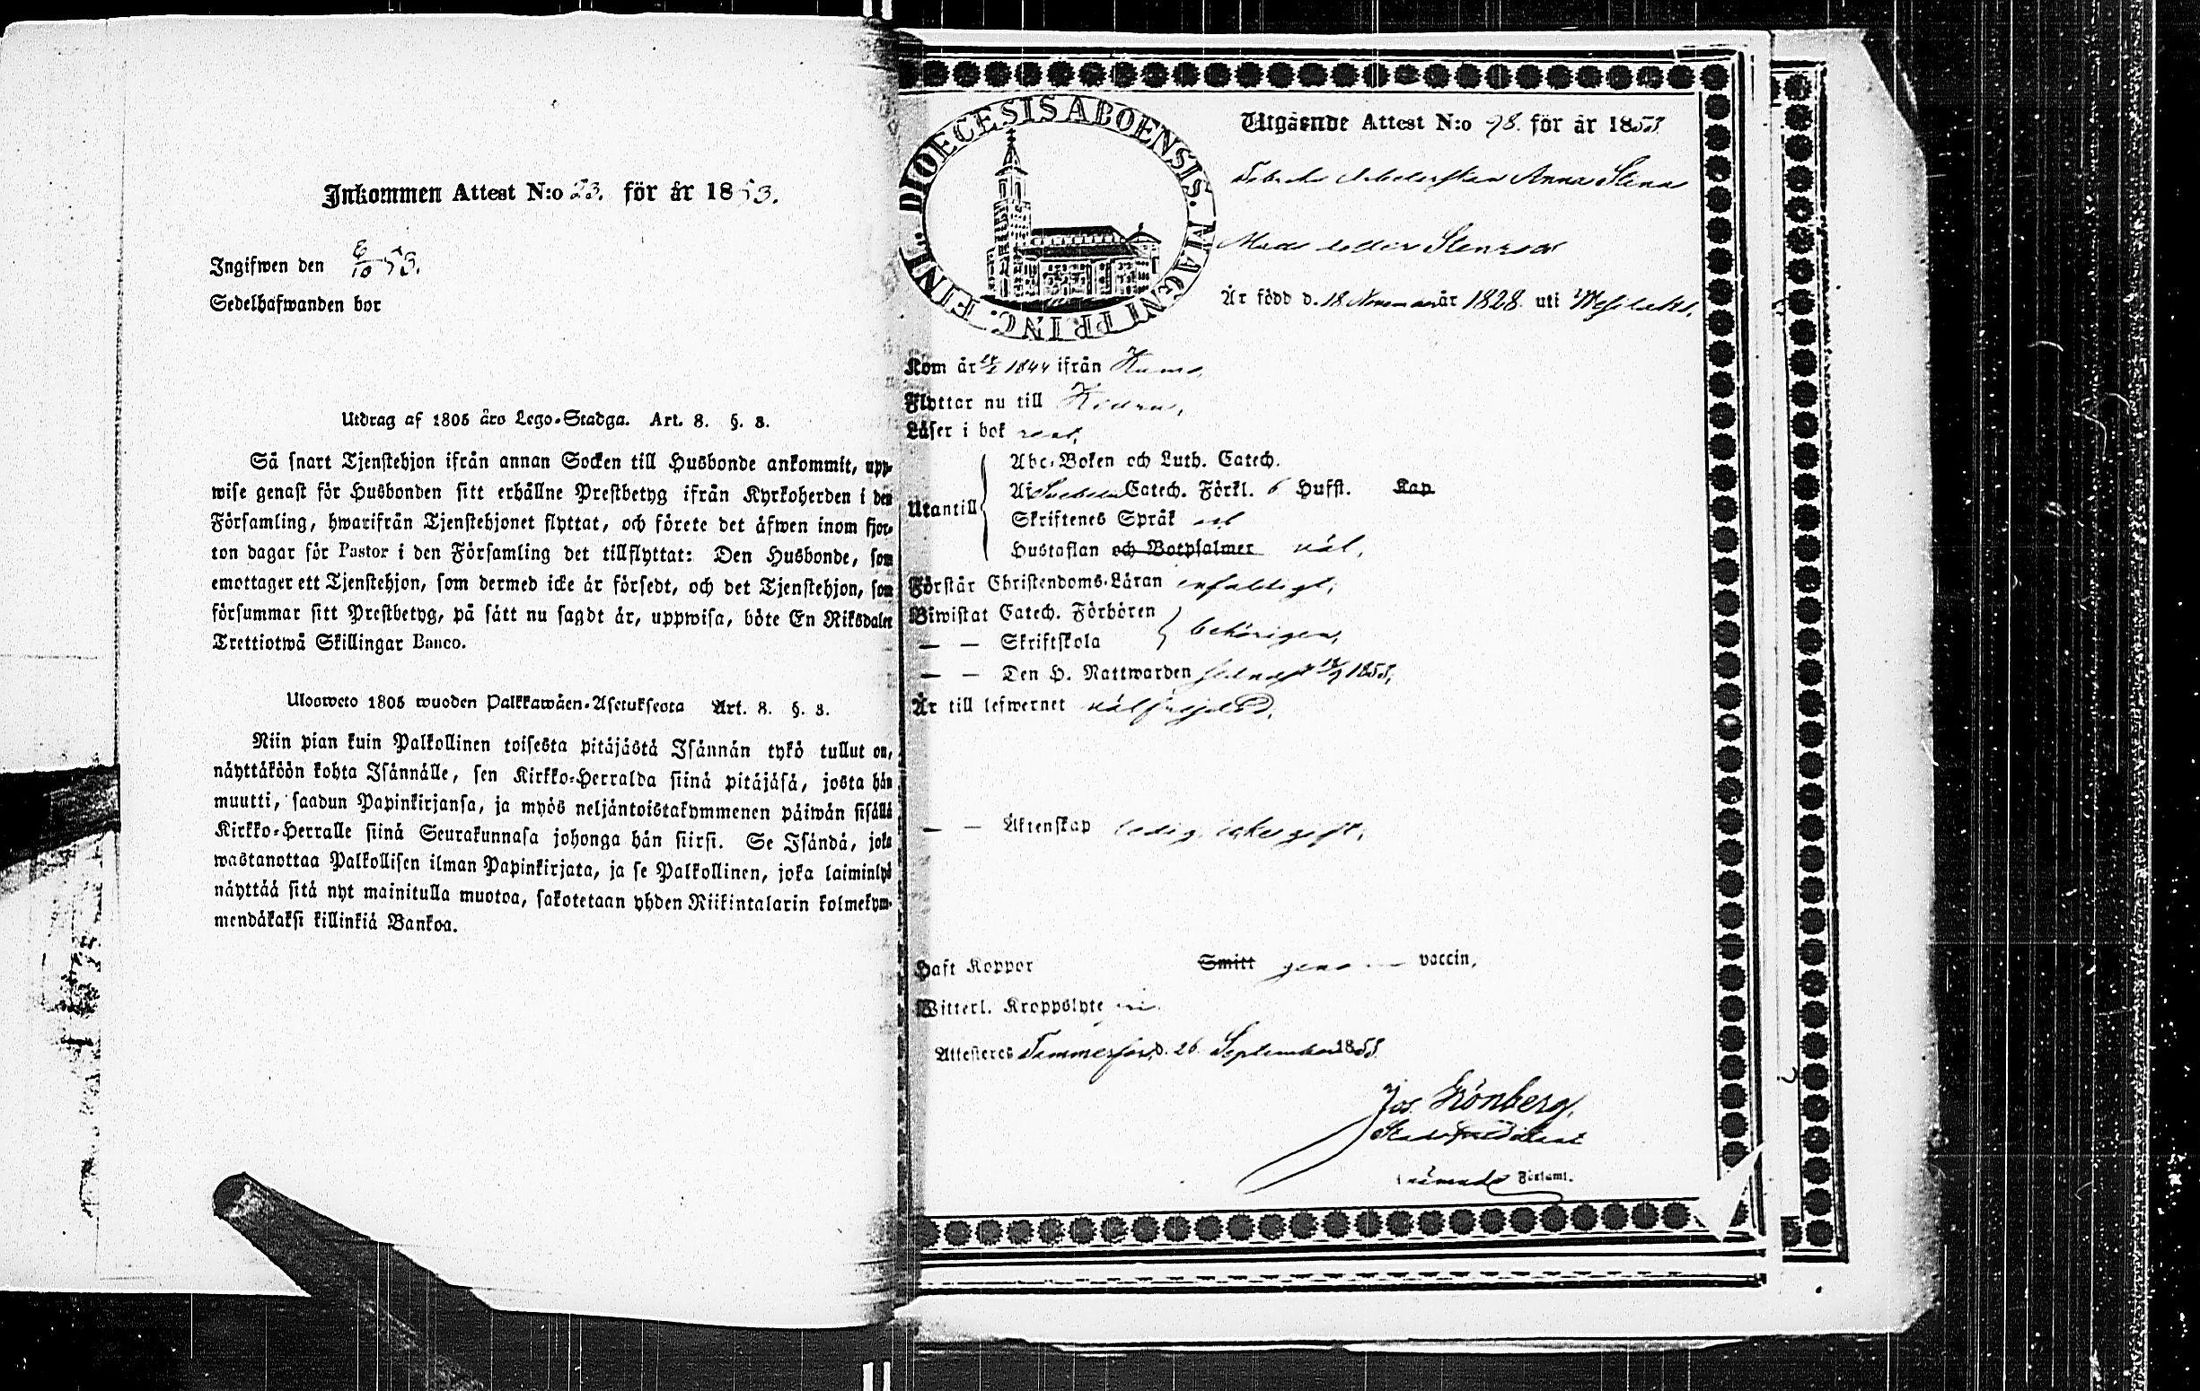 Inkommen Attest N:o 23. för år 1853.
Ingifwen den 6/10 53.
Sedelhafwanden bor
Utdrag af 1805 åro Lego-Stadga. Art. 8. §. 8.
Så snart Tjenstehjon ifrån annan Socken till Husbonde ankommit, upp-
wise genast för Husbonden sitt erhållne Prestbetyg ifrån Kyrkoherden i den
Församling, hwarifrån Tjenstehjonet flyttat, och förete det åfwen inom fjor-
ton dagar för Pastor i den Församling det tillflyttat: Den Husbonde, som
emottager ett Tjenstehjon, som dermed icke är försedt, och det Tjenstehjon, som
försummar sitt Prestbetyg, på sätt nu sagdt är, uppwisa, böte En Riksdaler
Trettiotwå Skillingar Banco.
Ulosweto 1805 wuoden Palkkawäen-Asetuksesta Art. 8. §. 8.
Niin pian kuin Palkollinen toisesta pitäjästä Isännän tykö tullut on,
näyttäköön kohta Isännälle, sen Kirkko-Herralda siinä pitäjäsä, josta hän
muutti, saadun Papinkirjansa, ja myös neljäntoistakymmenen päiwän sisällä
Kirkko-Herralle siinä Seurakunnasa johonga hän siirsi. Se Isändä, joka
wastanottaa Palkollisen ilman Papinkirjata, ja se Palkollinen, joka laiminlyö
näyttää sitä nyt mainitulla muotoa, sakotetaan yhden Riikintalarin kolmekym-
mendäkaksi killinkiä Bankoa.
FINL. DIOECESIS ABOENSIS. MAGNI PRINC.
Utgående Attest N:o 98. för år 1853.
Anna Stina
Mats dotter Stenroos
År född d. 18 November år 1828 uti
Kom år 1844 ifrån
Flyttar nu till
Läser i bok
Utantill
Abc-Boken och Luth. Catech.
Catech. Förkl. 6 Hufst. Kap
Skriftenes Språk
Hustaflan och Botpsalmer väl.
Förstår Christendoms-Läran enfaldigt.
Biwistat Catech. Förhören
— — Skriftskola behörigen,
— — Den H. Nattwarden 1853.
Är till lefwernet välfrejdad.
— — Äktenskap ledig
Haft Koppor Smitt genom vaccin,
Witterl. Kroppslyte
Attesteres Tammerfors d. 26 September 1853.
Jos. Grönberg.
Förtamt.